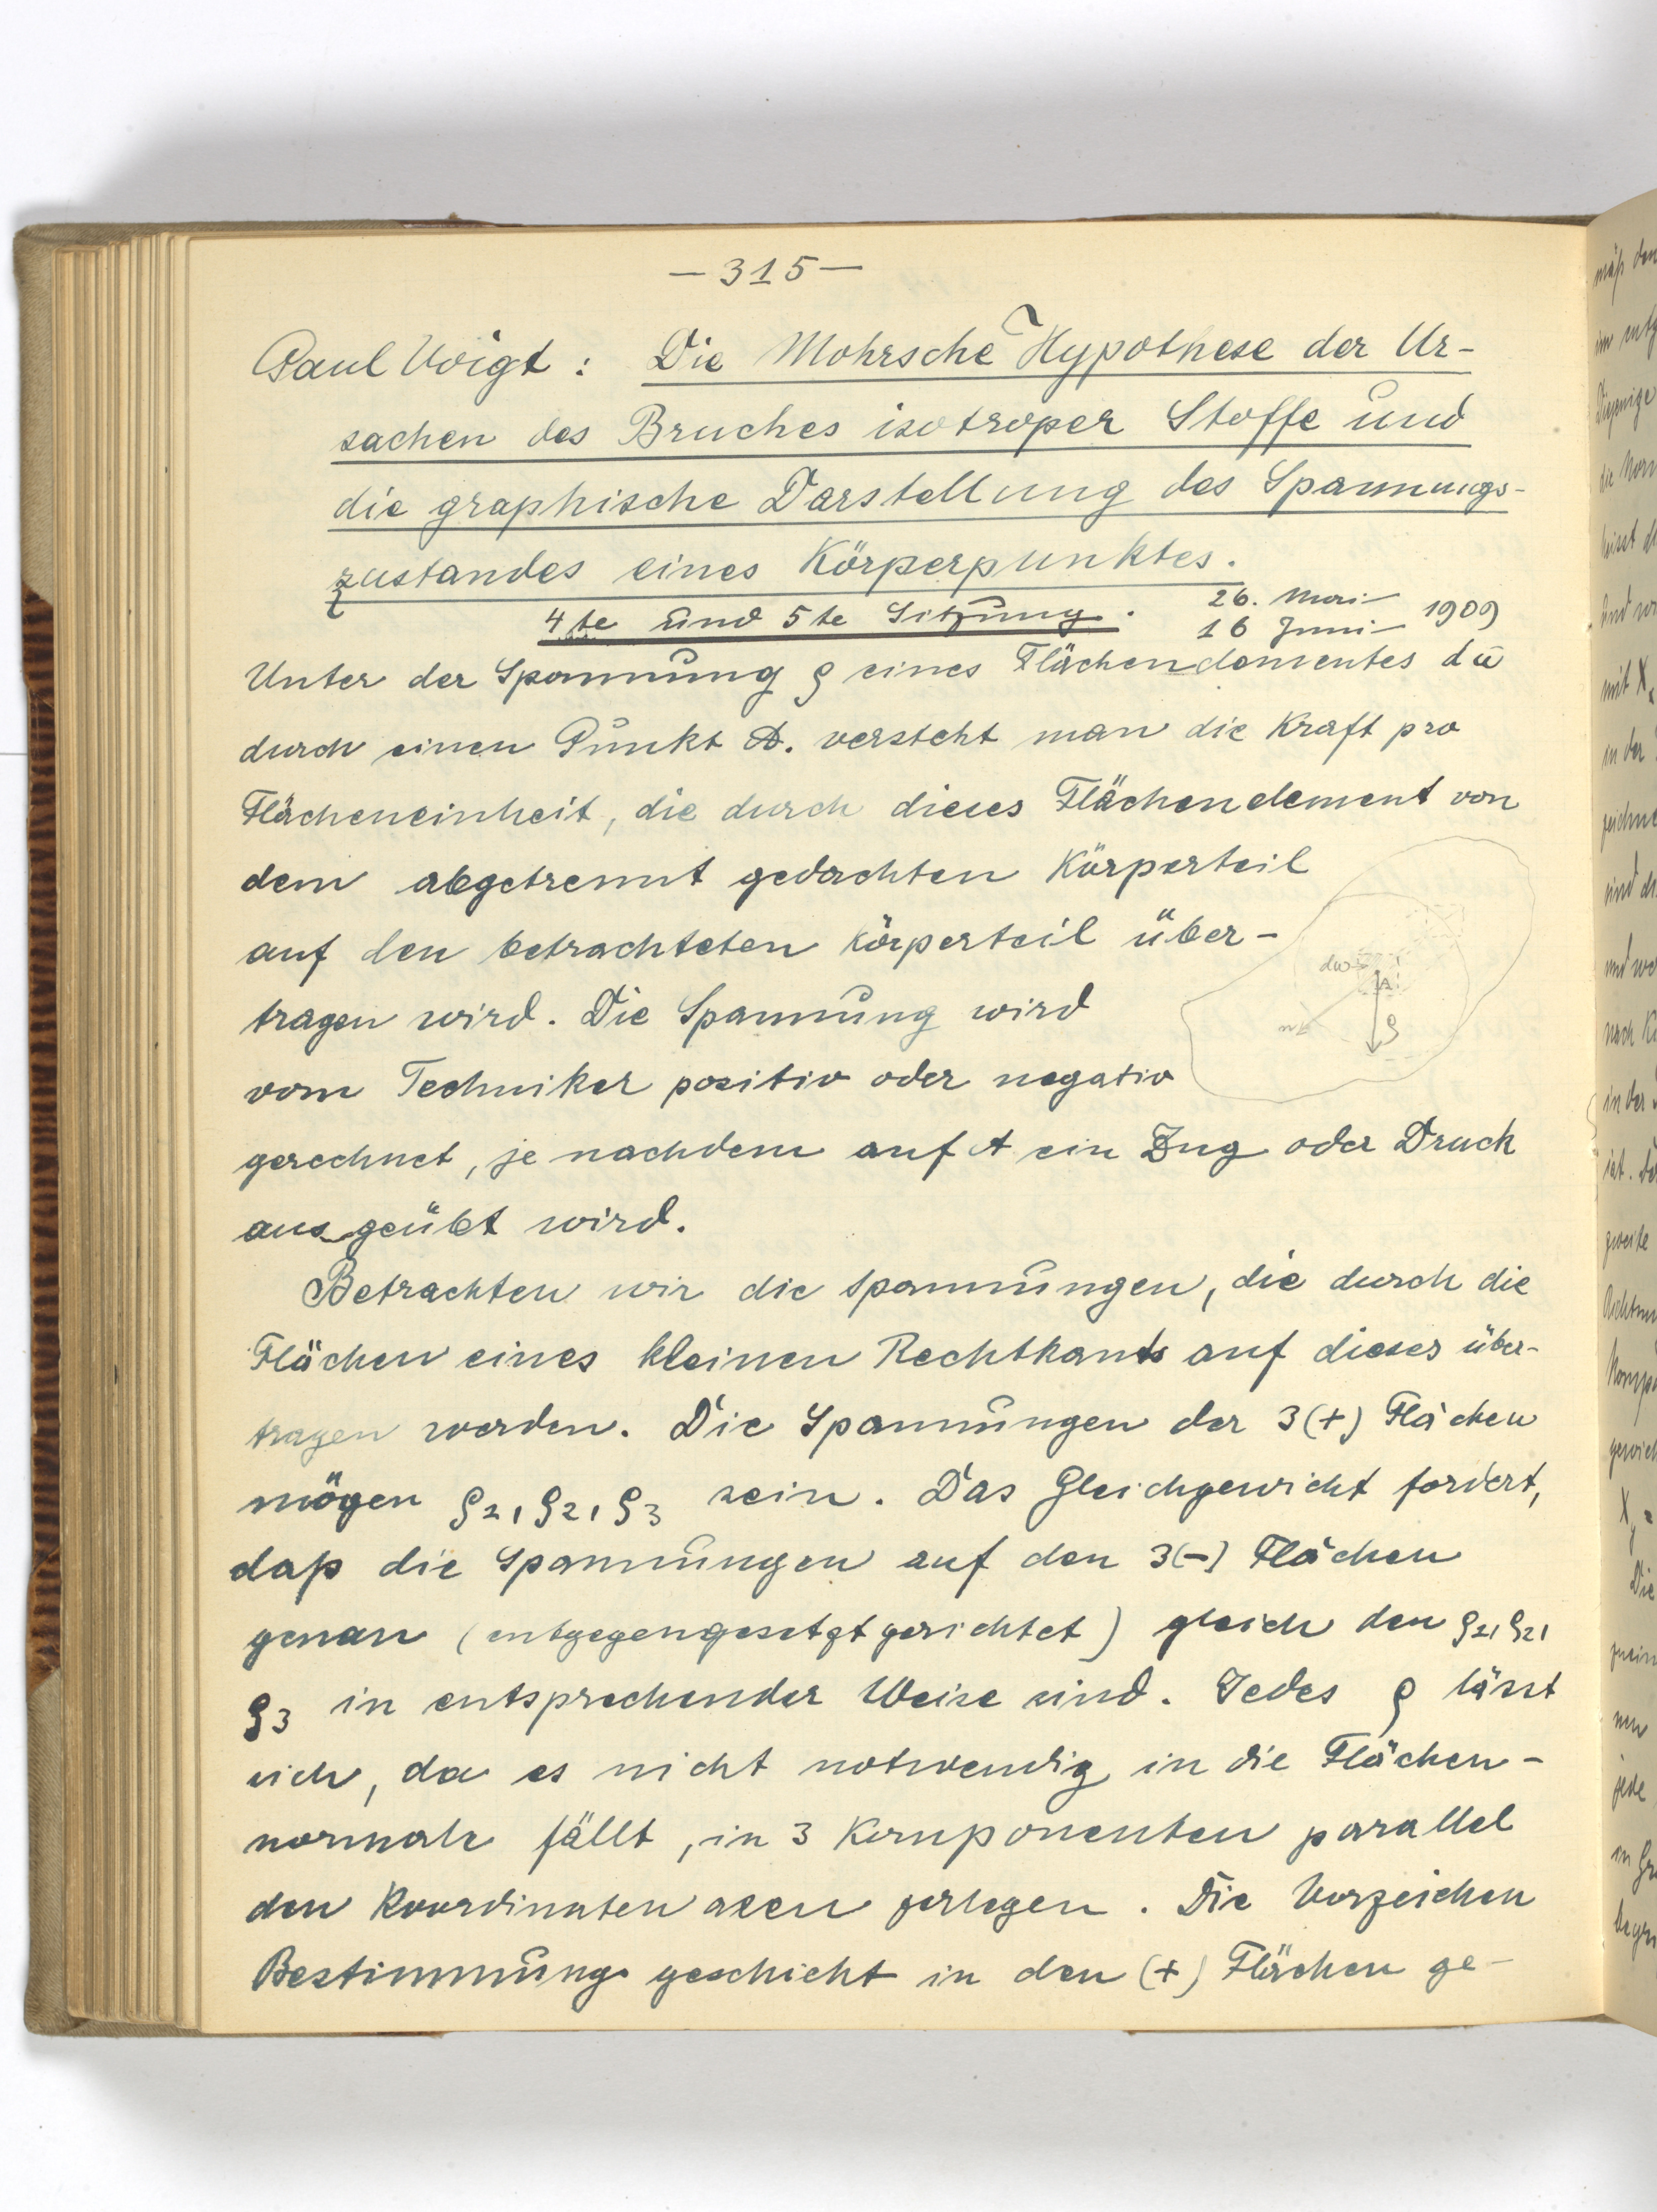 — 315 —
Paul Voigt : Die Mohrsche Hypothese der Ur-
sachen des Bruches isotroper Stoffe und
die graphische Darstellung des Spannungs-
zustandes eines Körperpunktes.
4te und 5te Sitzung. 26. Mai – 1909
16 Juni –
Unter der Spannung ϱ eines Flächenelementes dω
durch einen Punkt A. versteht man die Kraft pro
Flächeneinheit, die durch dieses Flächenelement von
dem abgetrennt gedachten Körperteil
auf den betrachteten Körperteil über-
dω
tragen wird. Die Spannung wird
A
n
ϱ
vom Techniker positiv oder negativ
gerechnet, je nachdem auf A ein Zug oder Druck
ausgeübt wird.
Betrachten wir die Spannungen, die durch die
Flächen eines kleinen Rechtkants auf dieses über-
tragen werden. Die Spannungen der 3(+) Flächen
mögen ϱ₁, ϱ₂, ϱ₃ sein. Das Gleichgewicht fordert,
daß die Spannungen auf den 3(-) Flächen
genau (entgegengesetzt gerichtet) gleich den ϱ₁, ϱ₂,
ϱ₃ in entsprechender Weise sind. Jedes ϱ lässt
sich, da es nicht notwendig in die Flächen-
normale fällt, in 3 Komponenten parallel
den Koordinatenaxen zerlegen. Die Vorzeichen
Bestimmung geschieht in den (+) Flächen ge-